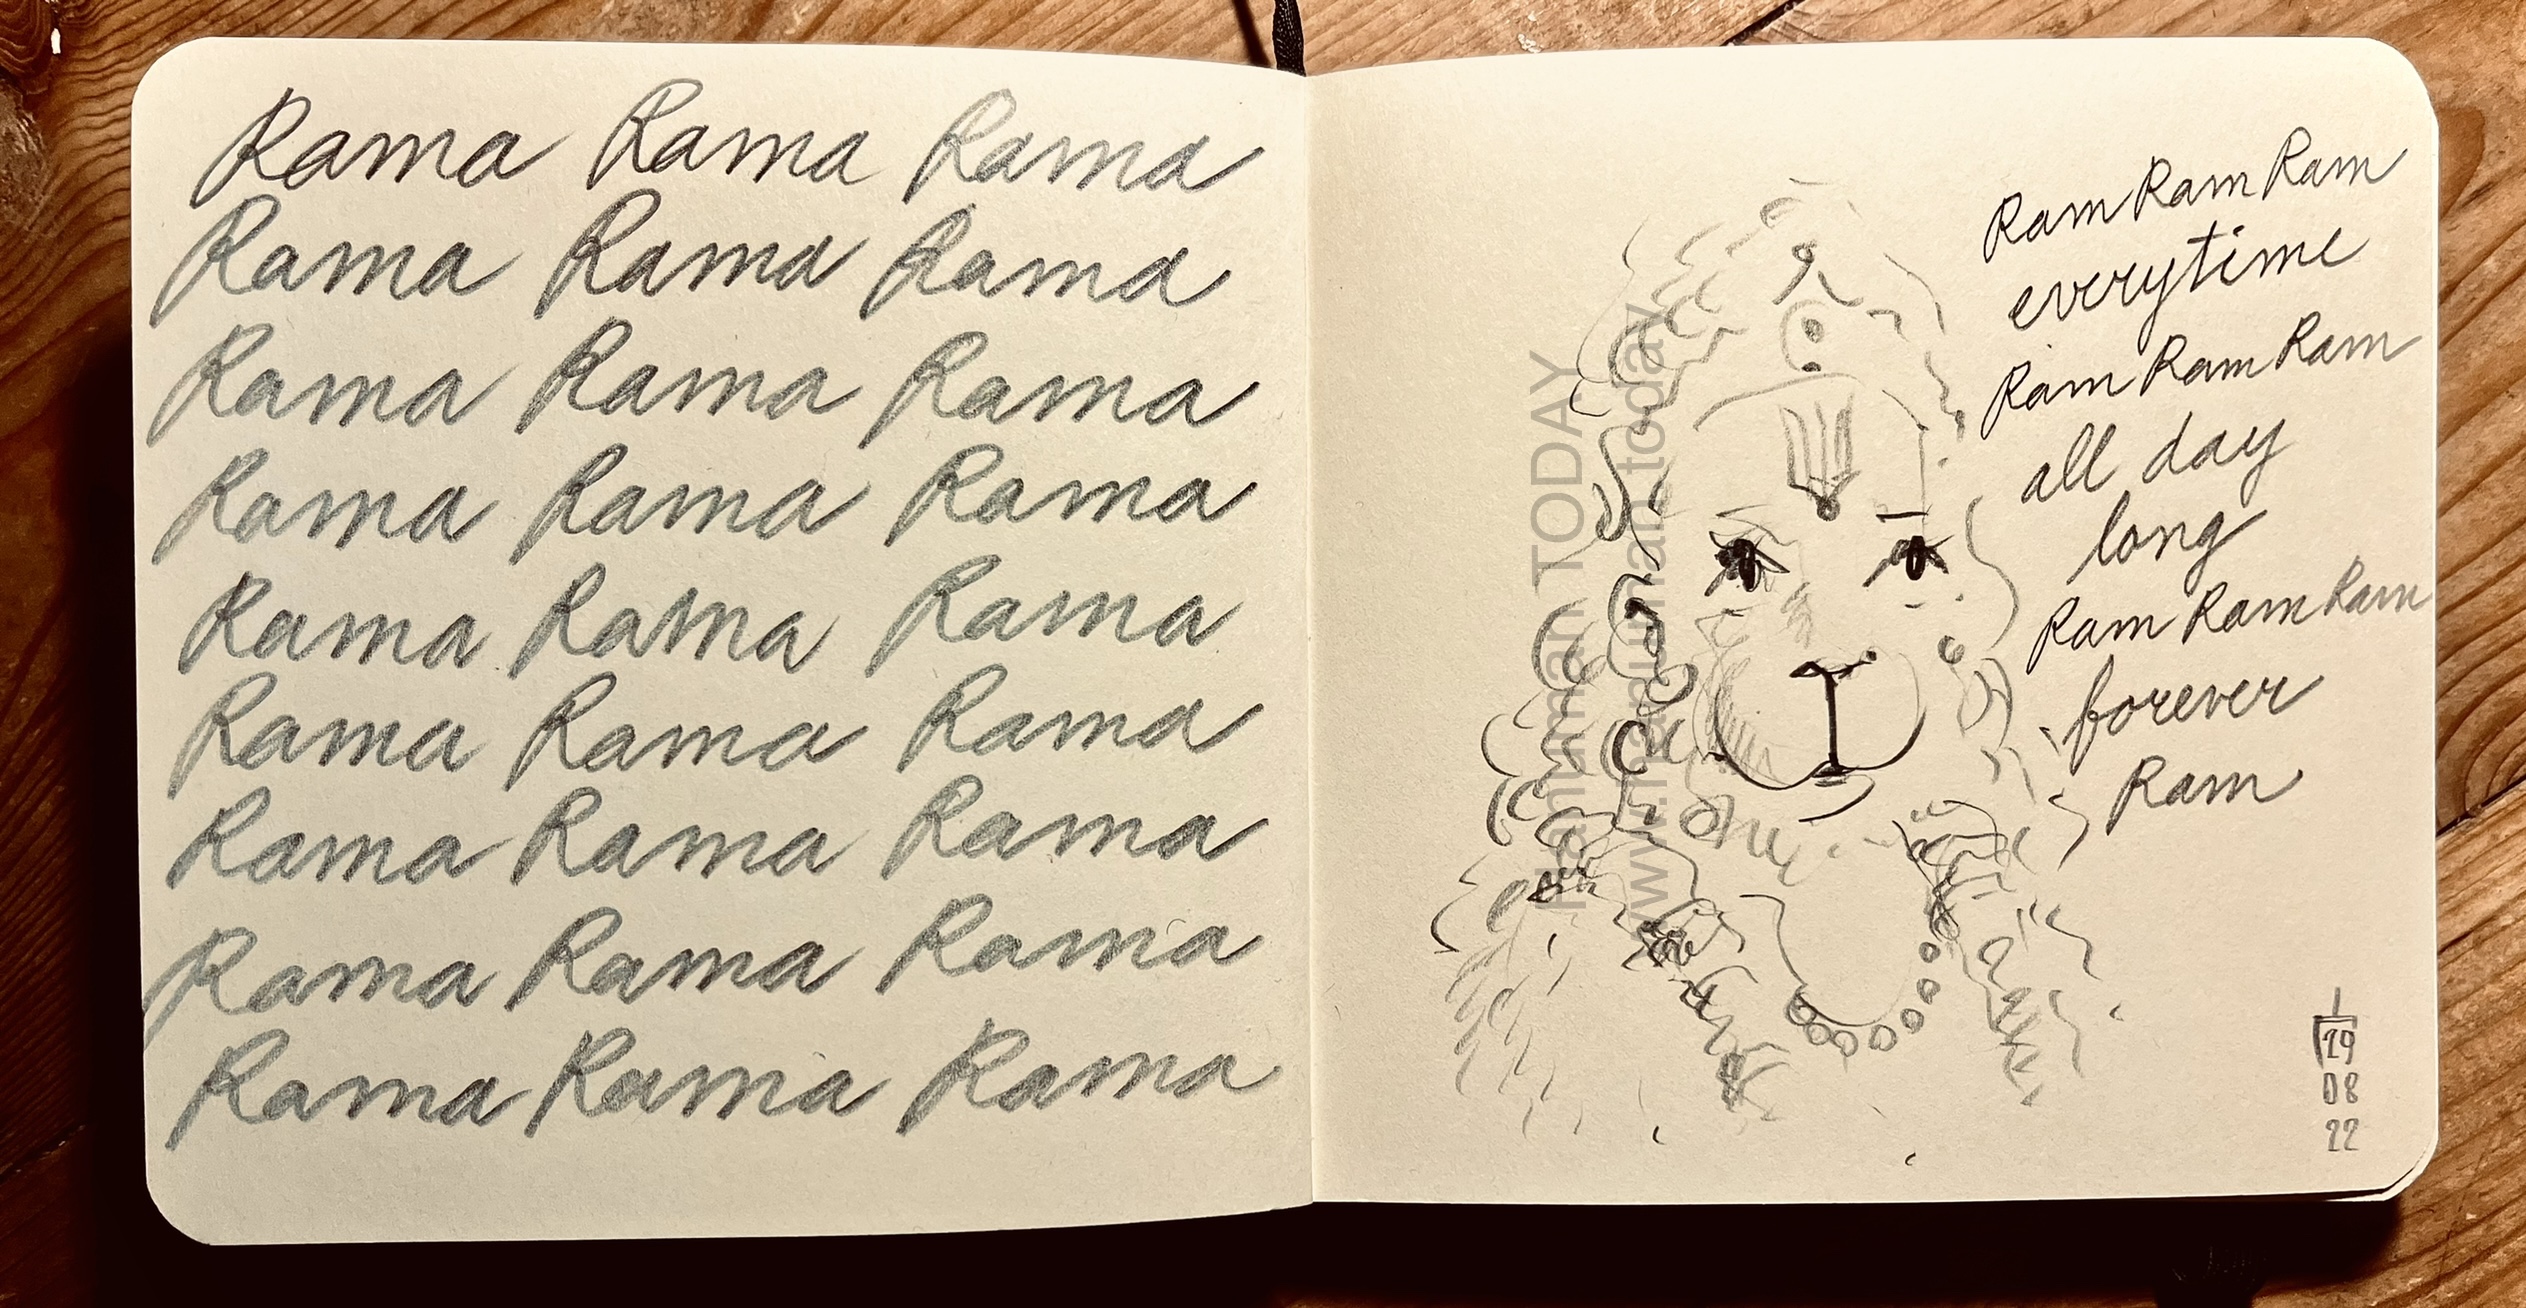 Rama Rama Rama
Rama Rama Rama
Rama Rama Rama
Rama Rama Rama
Rama Rama Rama
Rama Rama Rama
Rama Rama Rama
Rama Rama Rama
Rama Rama Rama
Ram Ram Ram
everytime
Ram Ram Ram
all day
long
Ram Ram Ram
forever
Ram
Hanuman TODAY
www.hanuman.today
1
29
08
22